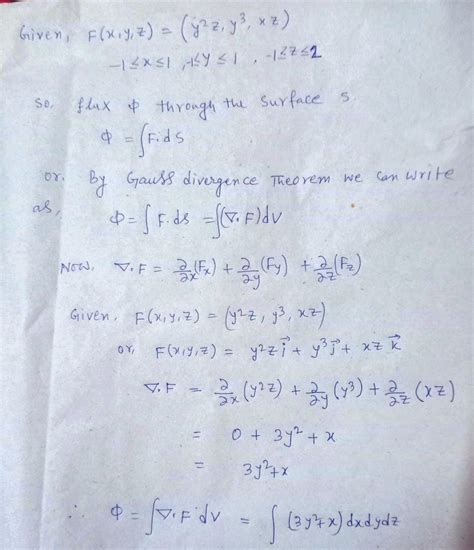 Given, F(x,y,z) = (y²z, y³, xz)
-1≤x≤1, -1≤y≤1, -1≤z≤2
So, flux ϕ through the surface s.
ϕ = ∫F.ds
or. By Gauss divergence Theorem we can write
as,
ϕ = ∫F.ds = ∫(∇.F)dv
Now. ∇.F = ∂/∂x(Fx) + ∂/∂y(Fy) + ∂/∂z(Fz)
Given, F(x,y,z) = (y²z, y³, xz)
or, F(x,y,z) = y²z i⃗ + y³ j⃗ + xz k⃗
∇.F = ∂/∂x(y²z) + ∂/∂y(y³) + ∂/∂z(xz)
= 0 + 3y² + x
= 3y²+x
∴ ϕ = ∫∇.F dv = ∫(3y²+x)dxdydz